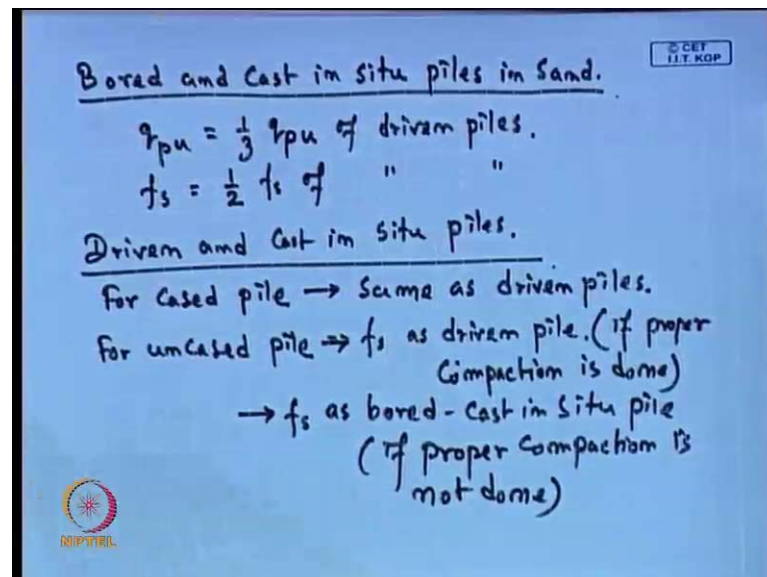 © CET
I.I.T. KGP
Bored and Cast in situ piles in Sand.
qpu = 1/3 qpu of driven piles.
fs = 1/2 fs of " "
Driven and Cast in situ piles.
For Cased pile → Same as driven piles.
For uncased pile ⇒ fs as driven pile. (if proper
Compaction is done)
→ fs as bored - Cast in situ pile
(if proper Compaction is
not done)
NPTEL